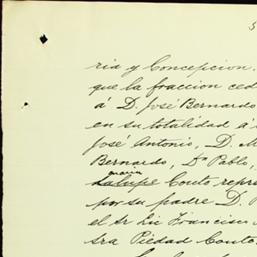 5
ria y Concepcion.
que la fraccion ced
á D. José Bernardo
en su totalidad á
José Antonio, D. M
Bernardo, Dª Pablo,
maria
Couto repre
por su padre D. P
el Sr Lic Francisc
sra Piedad Couto